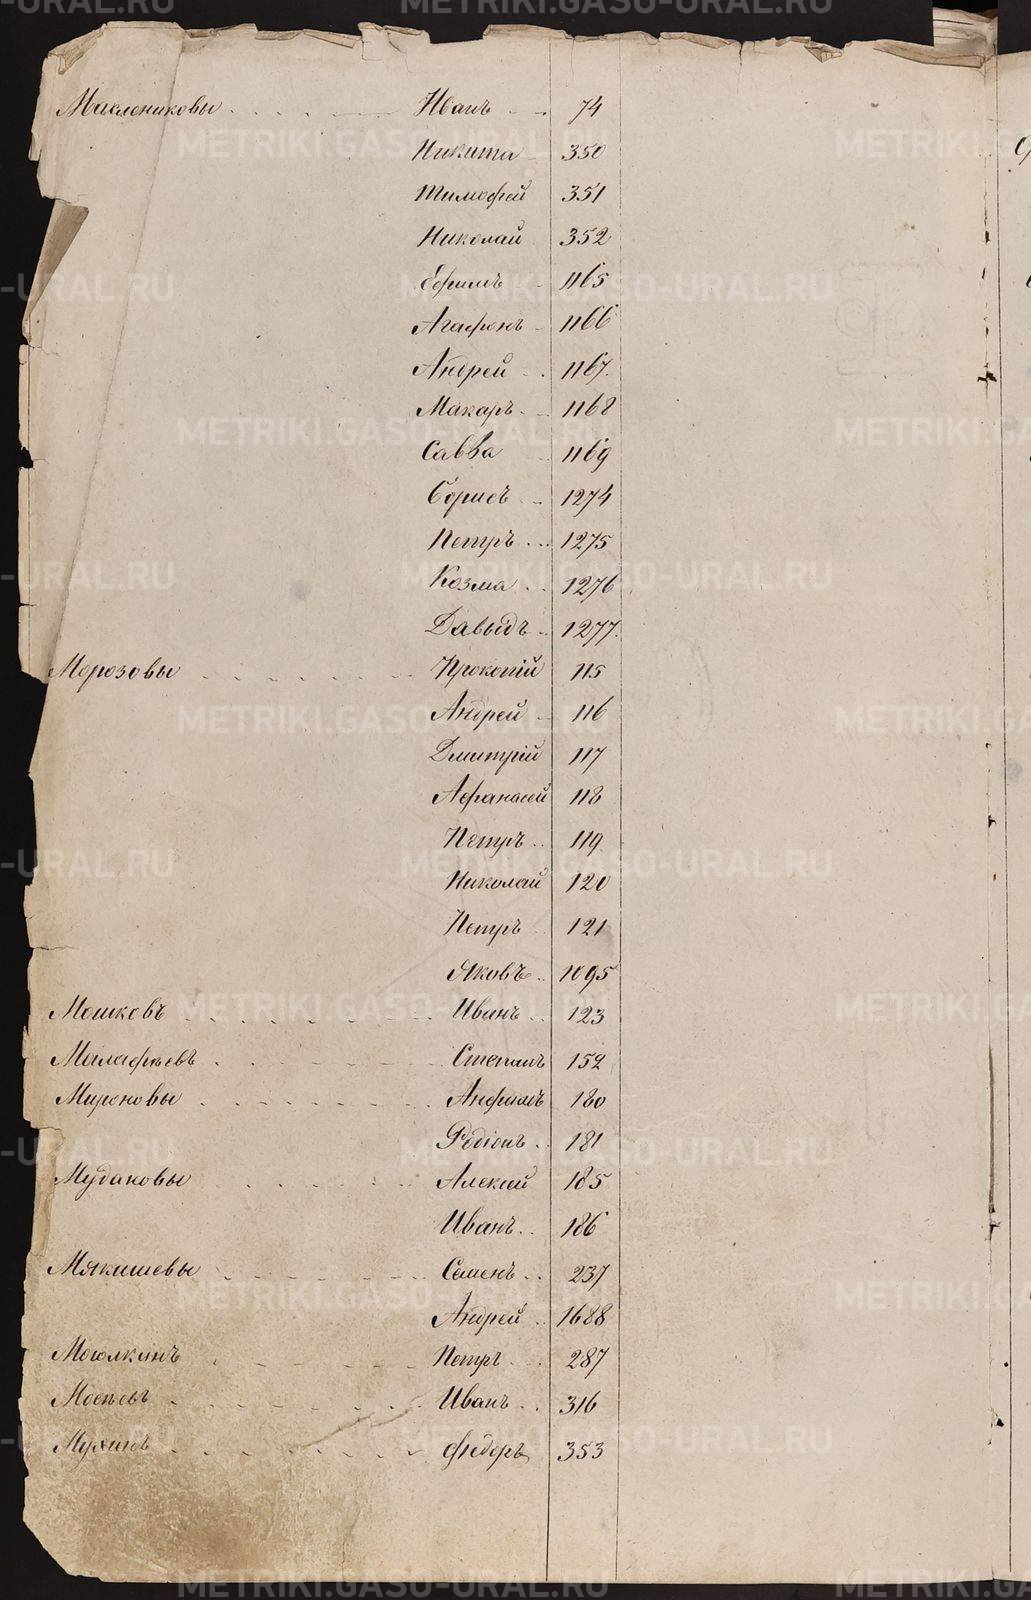 Маслениковы Иванъ 74
Никита 350
Тимофей 351
Николай 352
Ефимъ 1165
Агафонъ 1166
Андрей 1167
Макаръ 1168
Савва 1169
Борисъ 1274
Петръ 1275
Козма 1276
Давыдъ 1277
Морозовы Прокопій 115
Андрей 116
Дмитрій 117
Афанасей 118
Петръ 119
Николай 120
Петръ 121
Яковъ 1095
Мошковъ Иванъ 123
Малафѣевъ Степанъ 152
Мироновы Анфимъ 180
Родіонъ 181
Мудановы Алексѣй 185
Иванъ 186
Мякишевы Семенъ 237
Андрей 1688
Петръ 287
Мосѣевъ Иванъ 316
Мухинъ Федоръ 353
METRIKI.GASO-URAL.RU